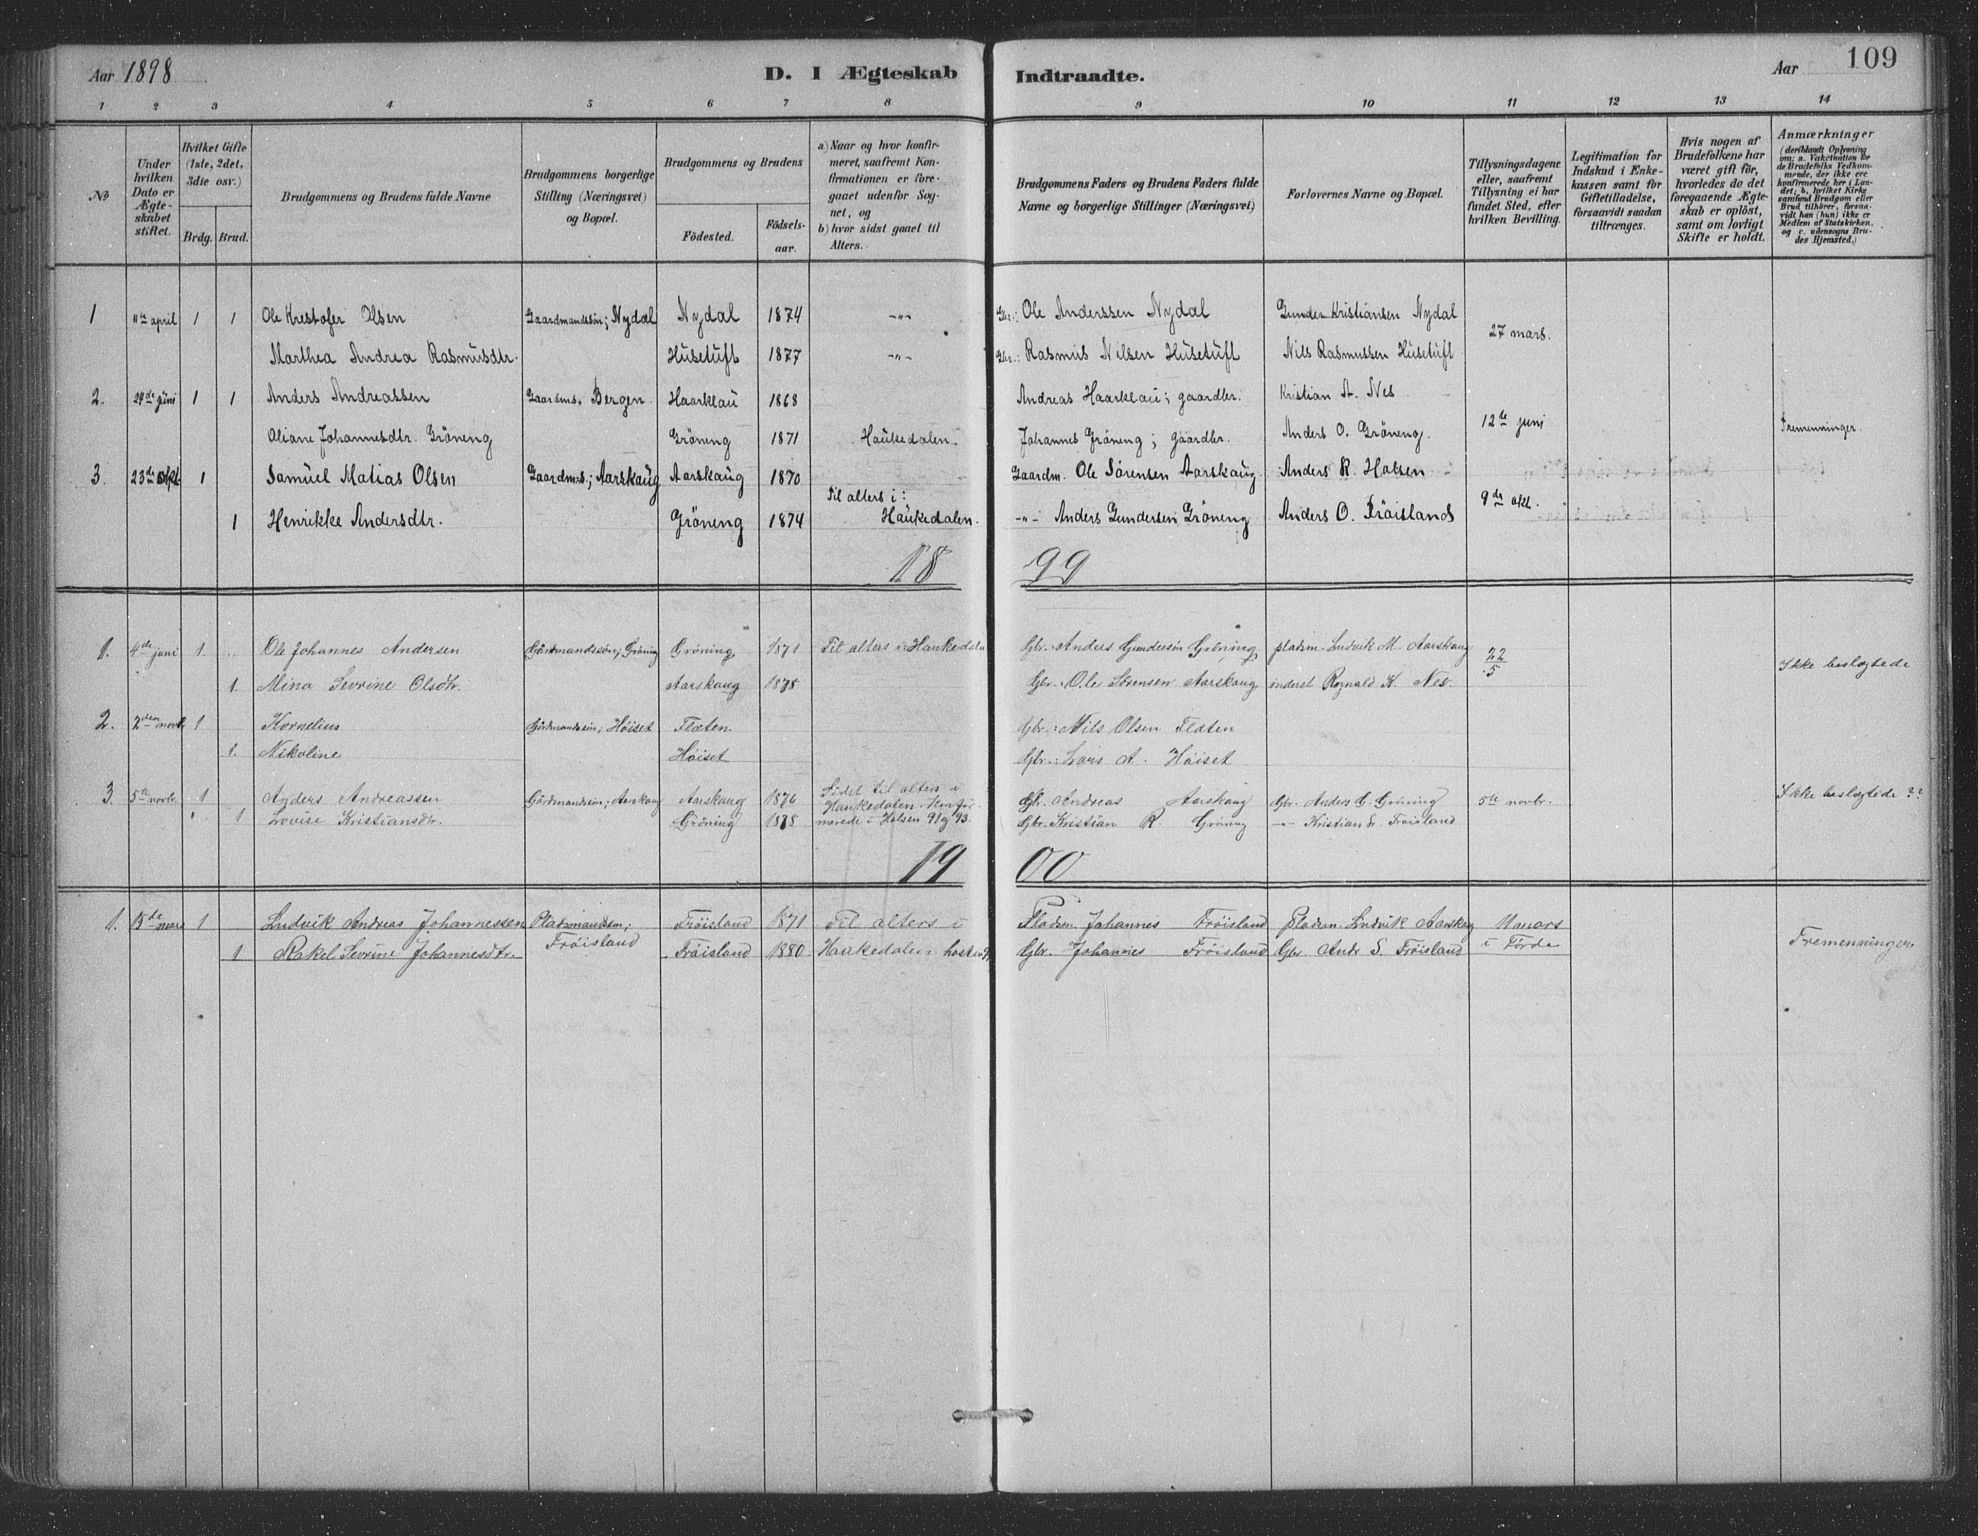 Aar 1898
D. I Ægteskab Indtraadte.
Aar 109
1 2 3 4 5 6 7 8 9 10 11 12 13 14
№
Under hvilken Dato er Ægteskabet stiftet.
Hvilket Gifte (1ste, 2det, 3die osv.)
Brdg. Brud.
Brudgommens og Brudens fulde Navne
Brudgommens borgerlige Stilling (Næringsvei) og Bopæl.
Brudgommens og Brudens
Fødested.
Fødselsaar.
a) Naar og hvor konfirmeret, saafremt Konfirmationen er foregaaet udenfor Sognet, og
b) hvor sidst gaaet til Alters.
Brudgommens Faders og Brudens Faders fulde Navne og borgerlige Stillinger (Næringsvei)
Forlovernes Navne og Bopæl.
Tillysningsdagene eller, saafremt Tillysning ei har fundet Sted, efter hvilken Bevilling.
Legitimation for Indskud i Enkekassen samt for Giftetilladelse, forsaavidt saadan tiltrænges.
Hvis nogen af Brudefolkene har været gift før, hvorledes da det foregaaende Ægteskab er opløst, samt om lovligt Skifte er holdt.
Anmærkninger
(deriblandt Oplysning om: a. Vakcination for de Brudefolks Vedkommende, der ikke ere konfirmerede her i Landet; b. hvilket Kirkesamfund Brudgom eller Brud tilhører, forsaavidt han (hun) ikke er Medlem af Statskirken, og c. udensogns Brudes Hjemsted.)
1 11te april 1 1 Ole Krestofer Olsen Gaardmandssøn; Nydal Nydal 1874 -"- Gbr.: Ole Anderssen Nydal Gunder Kristiansen Nydal 27 mars.
Marthea Andrea Rasmusdtr. Husetuft 1877 -"- Gbr.: Rasmus Nilsen Husetuft Nils Rasmussen Husetuft
2. 29de juni 1 1 Anders Andreassen Gaardms. Bergen. Haarklau 1868 Andreas Haarklau; gaardbr. Kristian A. Nes
Oliane Johannesdtr. Gröneng Gröneng 1871 Haukedalen. Johannes Gröneng; gaardbr. Anders O. Gröneng. 12te juni Fremenninger.
3 23de okt. 1 Samuel Matias Olsen Gaardms.; Aarskaug Aarskaug 1870 Gaardm. Ole Sørensen Aarskaug Anders R. Halsen
1 Henrikke Andersdtr. Gröneng 1874 Til alters i: Haukedalen. -"- Anders Gundersen Gröneng Anders O. Fröisland 9de okt.
1899
1. 4de juni 1. Ole Johannes Andersen Gårdmandssön; Gröning Gröning 1871 Til alters i Haukedalen Gbr. Anders Gundersön Gröning pladsm. Ludvik M. Aarskaug 22/5 Ikke beslægtede
1. Mina Sevrine Olsdtr. Aarskaug 1878 Gbr. Ole Sörensen Aarskaug inderst Rognald K. Nes.
2. 2den novb. 1 Kornelius Gårdmandssön; Höiset Flæten Gbr. Nils Olsen Flæten
1. Nikoline Höiset Gbr. Lars A. Höiset
3. 5te novbr. 1 Anders Andreassen Gårdmandssön; Aarskaug Aarskaug 1876 Sidst til alters i Gbr. Andreas Aarskaug Gbr. Anders G. Gröning 5te novbr. Ikke beslægtede ??
1 Lovise Kristiansdtr. Gröning 1878 Haukedalen. Konfirmerede i Halsen 91 og 93. Gbr. Kristian R. Gröning -"- Kristian Fröisland
1900
1. 15de mars 1 Ludvik Andreas Johannessen Pladsmandssön; Fröisland Fröisland 1871 Til alters i Pladsm. Johannes Fröisland Pladsm. Ludvik Aarskog 11 mars i Förde
1 Rakel Sevrine Johannesdtr. Fröisland 1880 Haukedalen hösten Gbr. Johannes Fröisland Gbr. Andr S. Fröisland Fremenninger